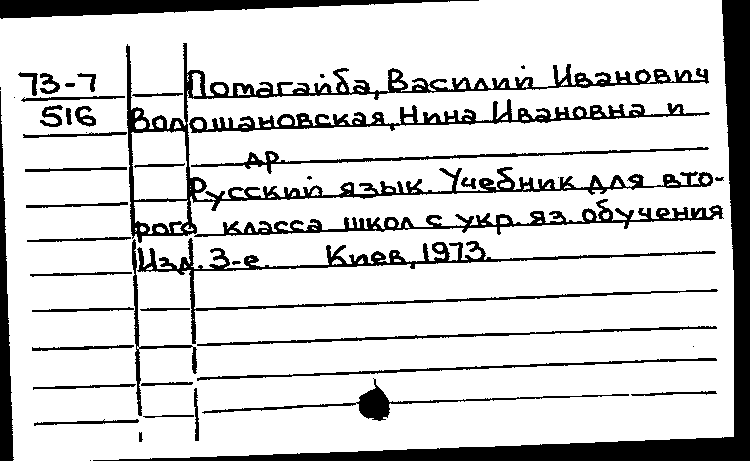 73-7 Помагайба, Василий Иванович
516 Волошановская, Нина Ивановна и
др.
Русский язык. Учебник для вто-
рого класса школ с укр. яз. обучения
Изд. 3-е. Киев, 1973.